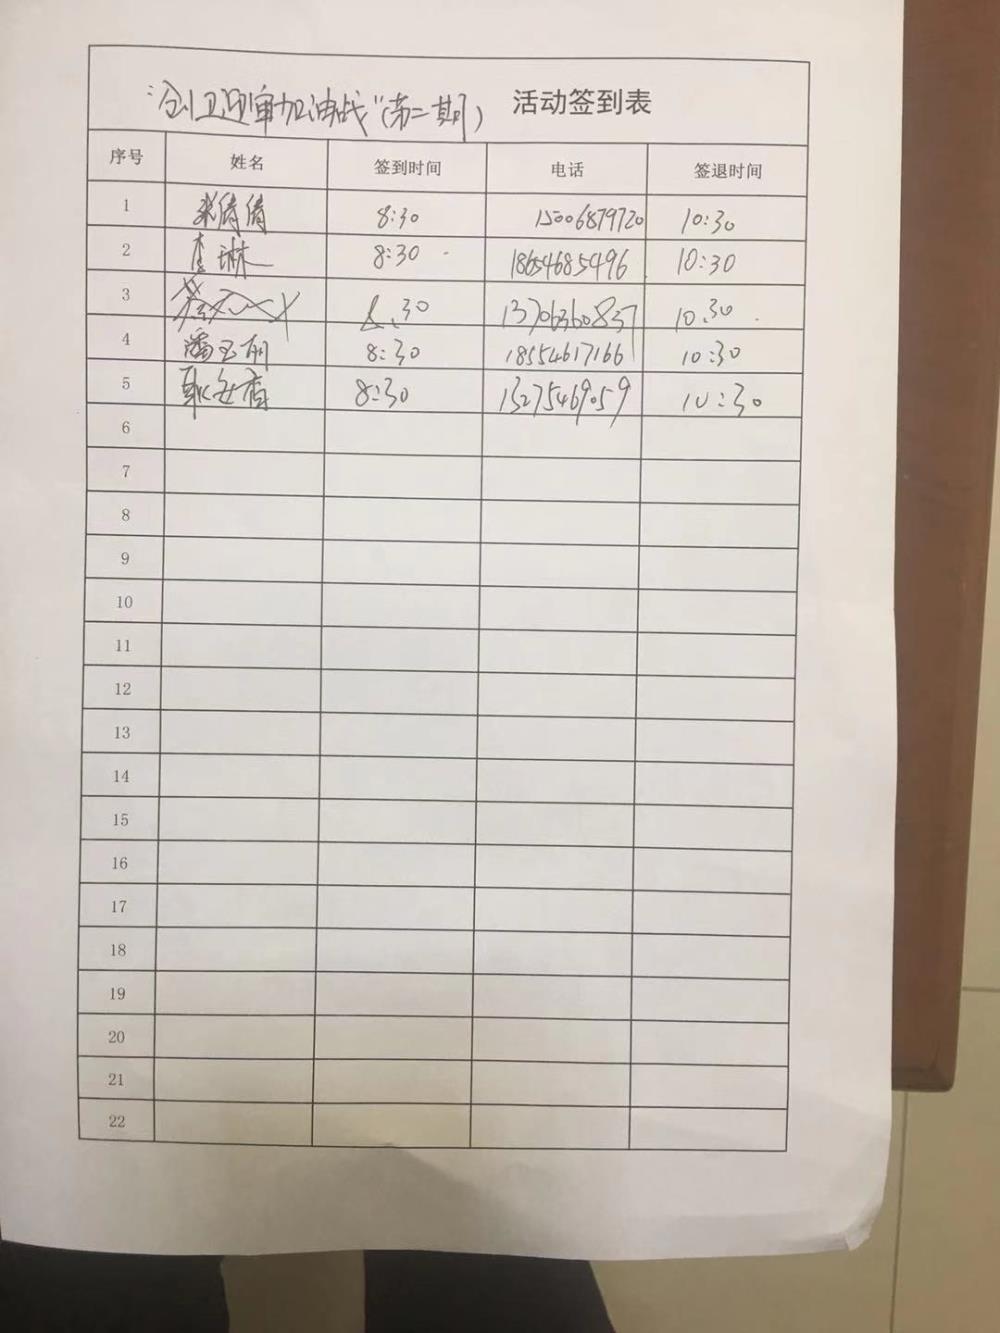 “创卫迎审加油战”(第二期) 活动签到表
序号 姓名 签到时间 电话 签退时间
1 张倩倩 8:30 15006879720 10:30
2 李琳 8:30 18654685496 10:30
3 8:30 13706360837 10:30
4 潘玉丽 8:30 18554617166 10:30
5 8:30 13275469059 10:30
6
7
8
9
10
11
12
13
14
15
16
17
18
19
20
21
22